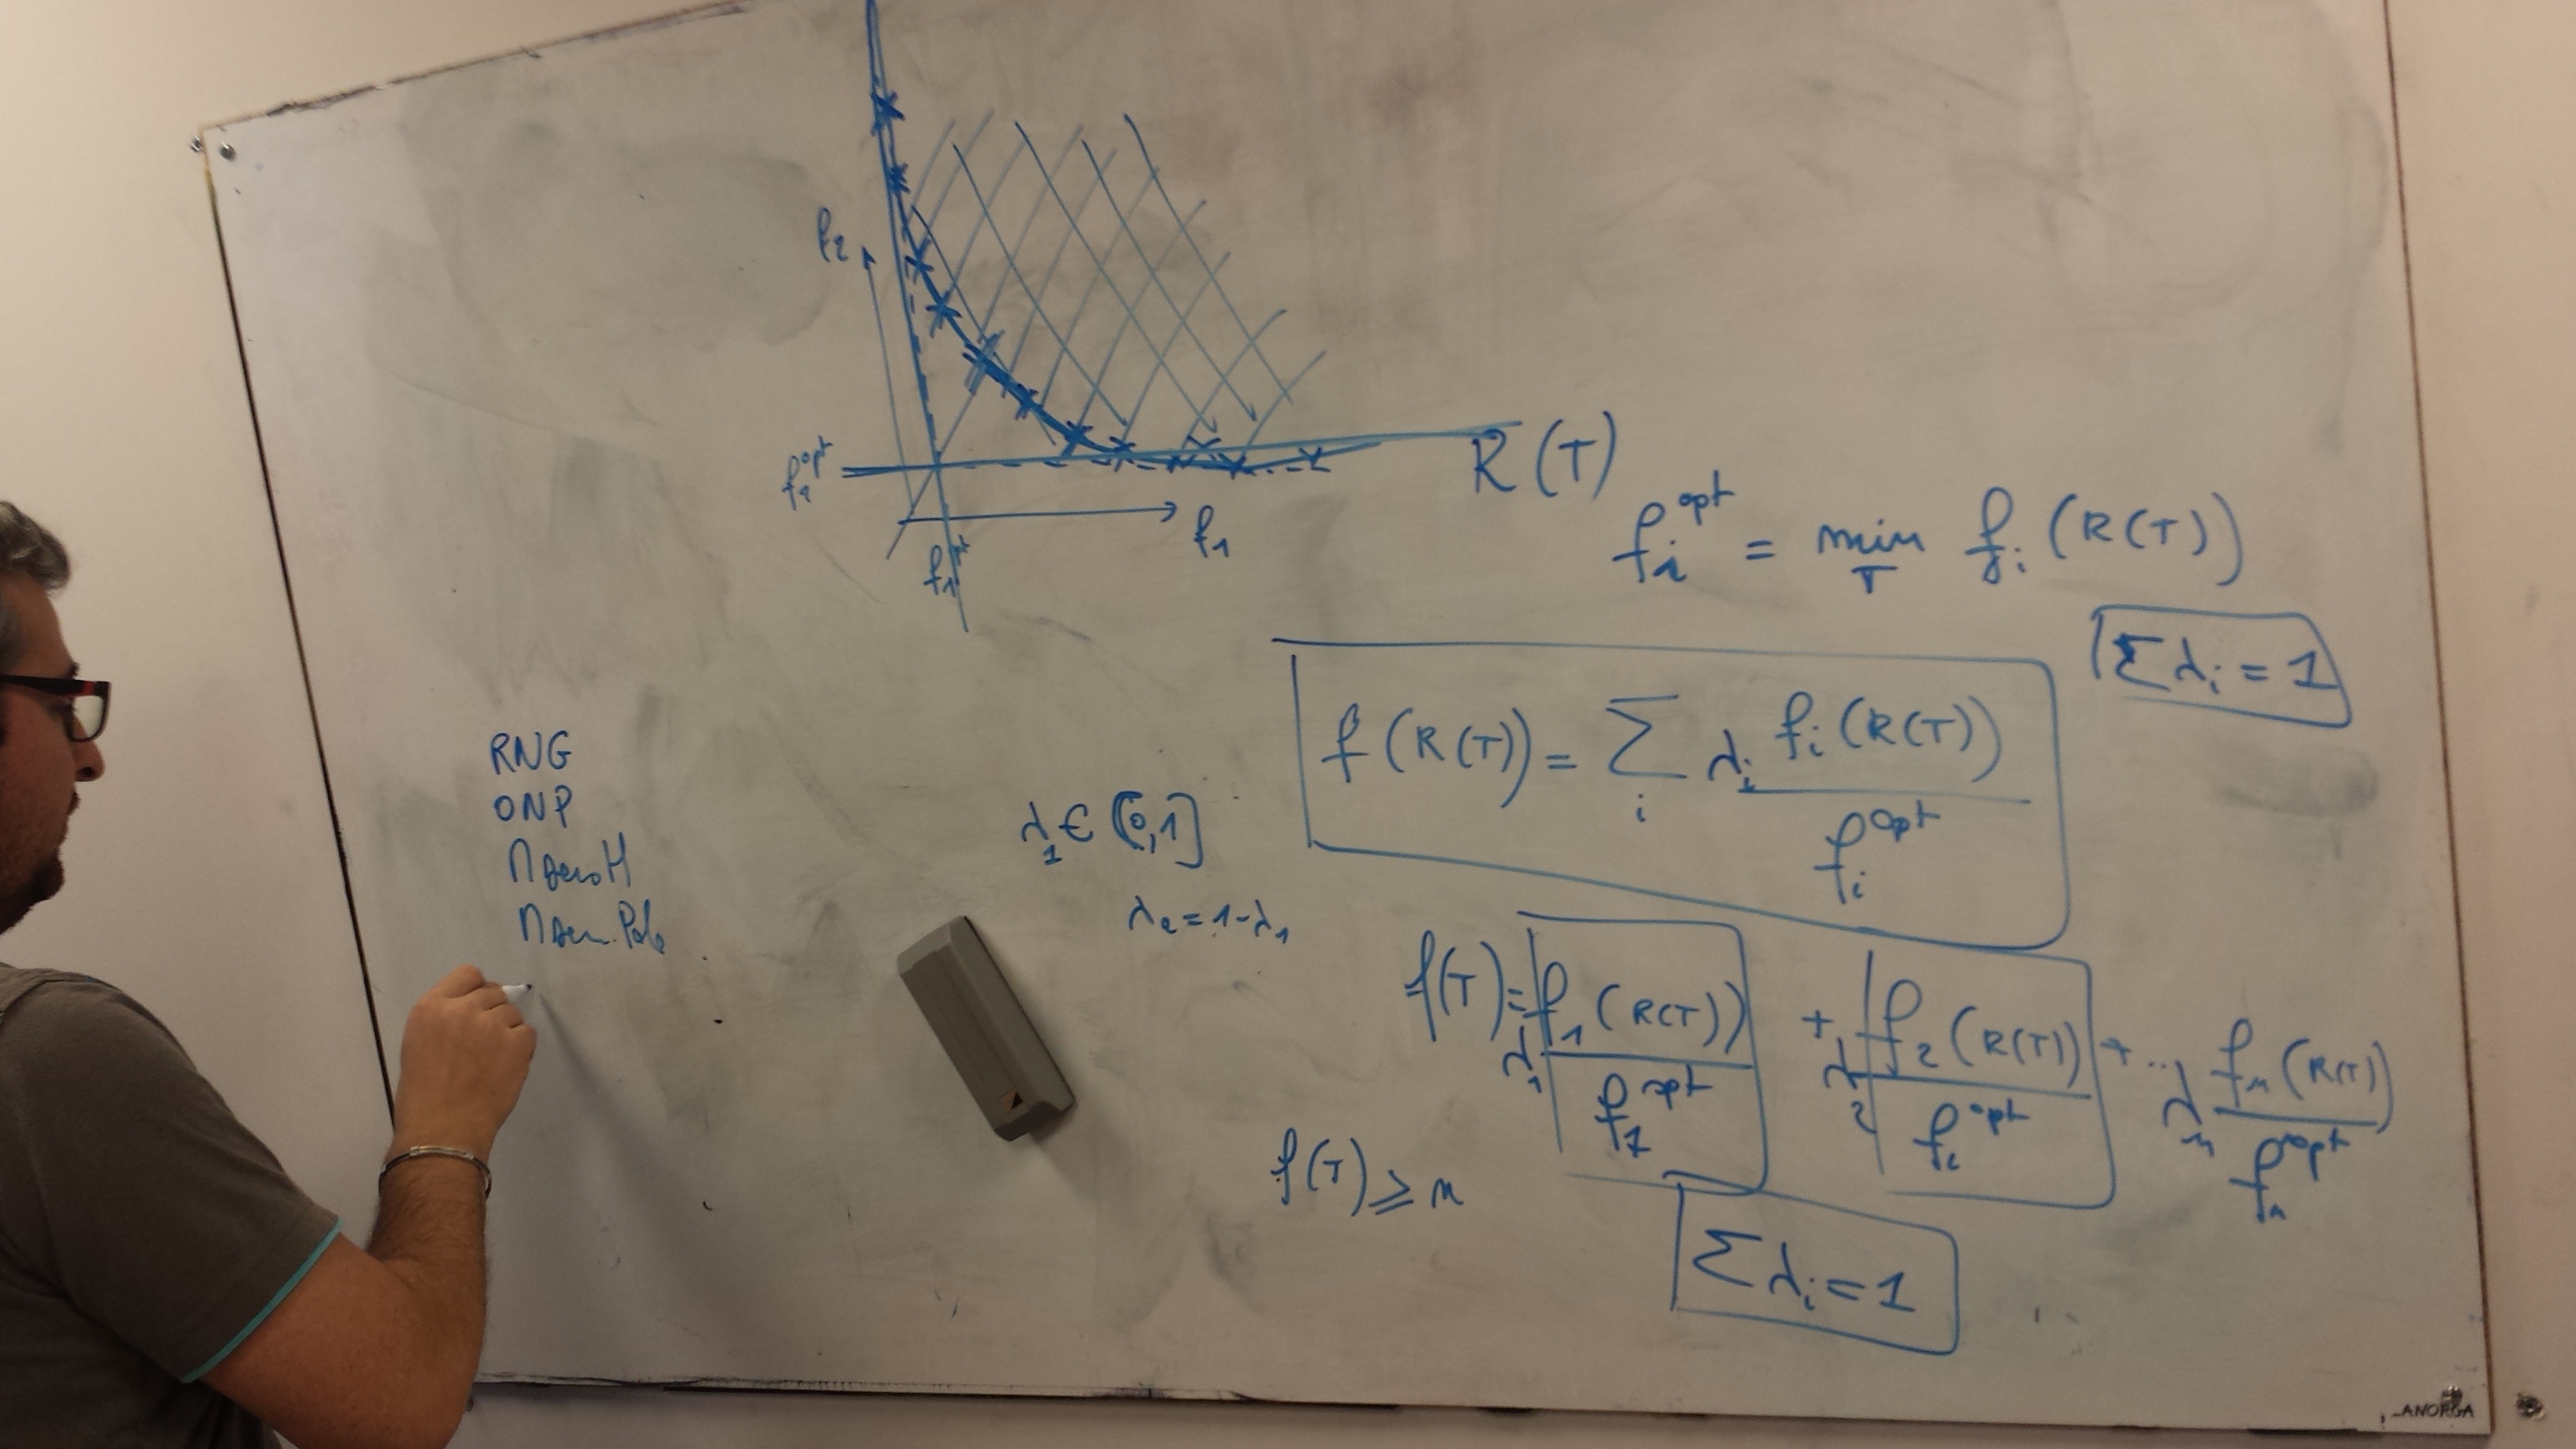 f₂
f₁^opt
f₁
f₁^opt
R(T)
f_i^opt = min_T f_i (R(T))
Σ λ_i = 1
f (R(T)) = Σ_i λ_i f_i (R(T)) / f_i^opt
RNG
ONP
λ₁ ∈ [0,1]
λ₂ = 1-λ₁
f(T) = λ₁ f₁ (R(T)) / f₁^opt + λ₂ f₂ (R(T)) / f₂^opt + ... λ_n f_n (R(T)) / f_n^opt
f(T) ≥ n
Σ λ_i = 1
ANORGA